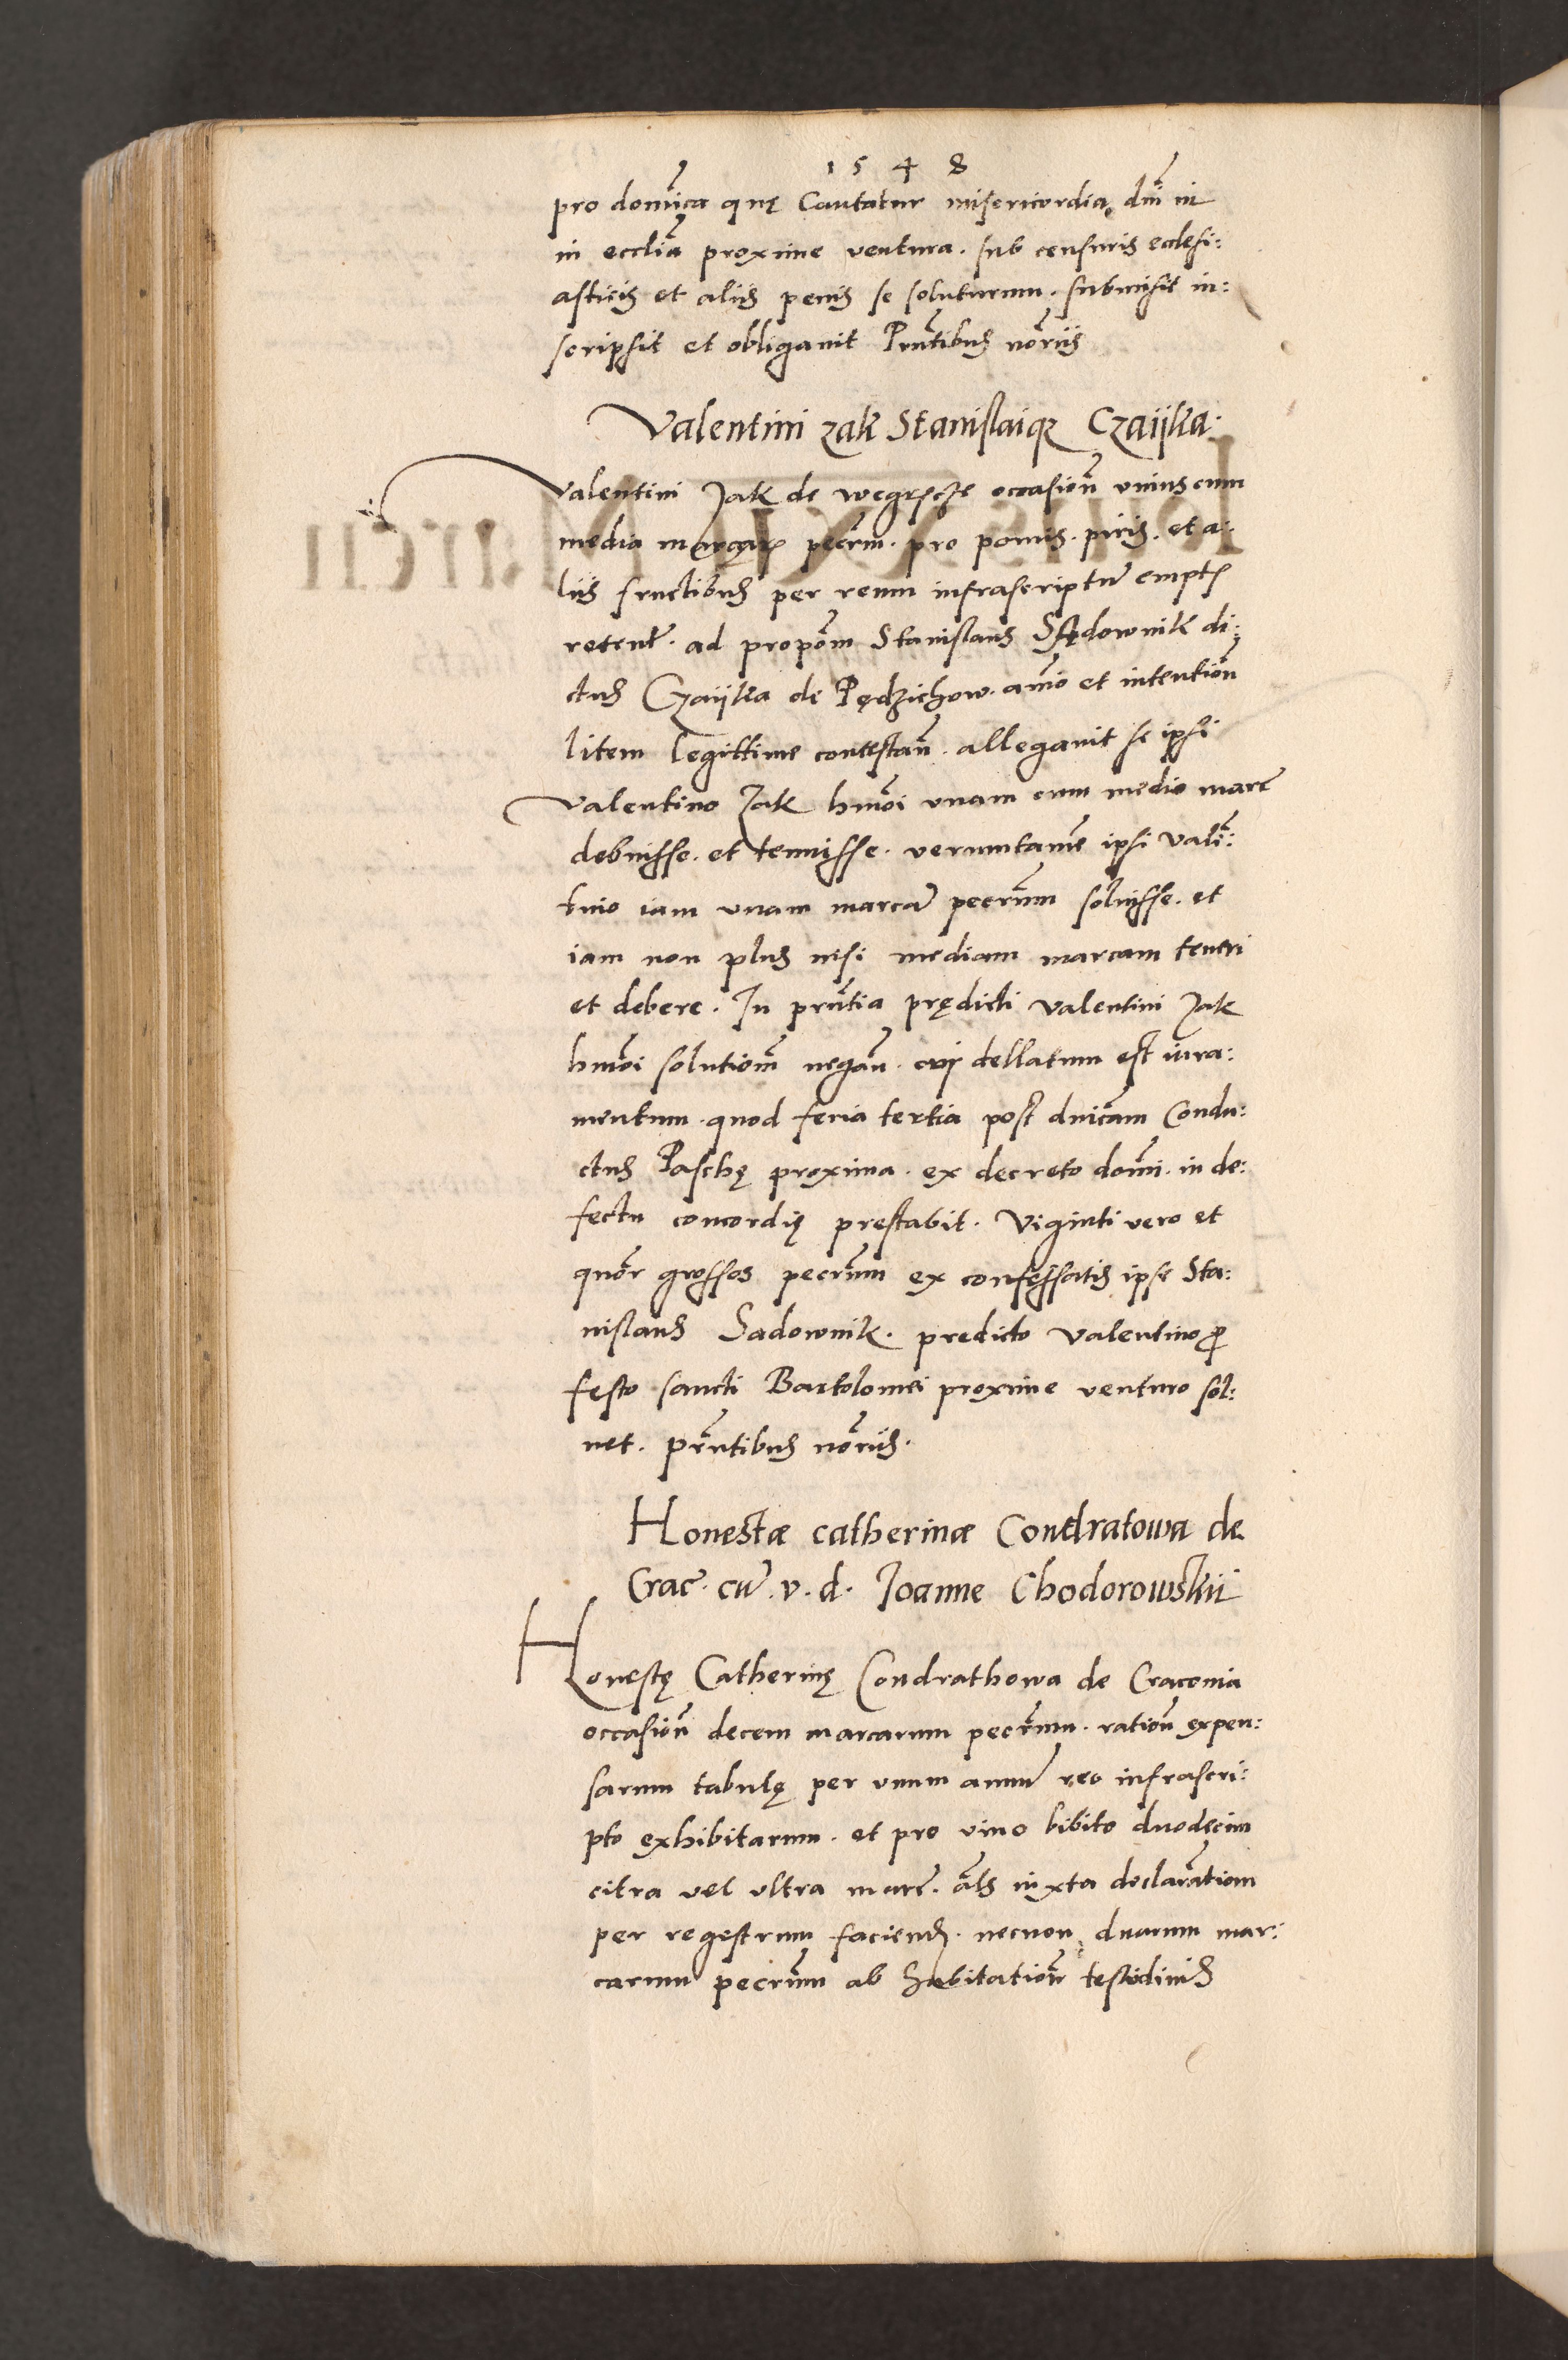 1548
pro domīca quę Cantatur misericordia dnī in
in ecclīa proxime ventura. sub censuris eclesi:
asticis et aliis penis se soluturum. submisit in:
scripsit et obligavit Pntībus norīis
Valentini zak Stanislaique Czaijka.
Valentini Zak de wegrzcze occasioñ unius cum
media marcarꝝ pecrm̄. pro pomis. piris. et a:
liis fructibus per reum infrascriptū empt
retent̄. ad propoīm Stanislaus Sędownik di:
ctus Czaijka de Pędzichow. anīo et intentioñ
litem legittime contestañ. allegavit se ipsi
Valentino Zak hmōi unam cum media marc̄
debuisse. et tenuisse. veruntamē ipsi Valē:
tino iam unam marcā pecrum̄ solvisse. et
iam non plus nisi mediam marcam teneri
et debere. In prntīa prędicti Valentini Zak
hmōi solutiōm negañ. cui dellatum est iura:
mentum. quod feria tertia post dnīcam Condu:
ctus Paschę proxima. ex decreto domī. in de:
fectu concordię prestabit. Viginti vero et
quōr grossos pecrum̄ ex confessatis ipse Sta:
nislaus Sadownik. predicto Valentino ꝓ
festo sancti Bartolomei proxime venturo sol:
vet. prntībus norīis.
Honestæ catherinæ Condratowa de
Crac̄. cū. v. d. Joanne Chodorowskii
Honestę Catherinę Condrathowa de Cracovia
occasioñ decem marcarum pecrum̄. ratioñ expen:
sarum tabulę per unum annū reo infrascri:
pto exhibitarum. et pro vino bibito duodecim
citra vel ultra marc̄. āls iuxta declarātiom
per regestrum faciend. necnon duarum mar:
carum pecrum̄ ab habitatioñ testudinis